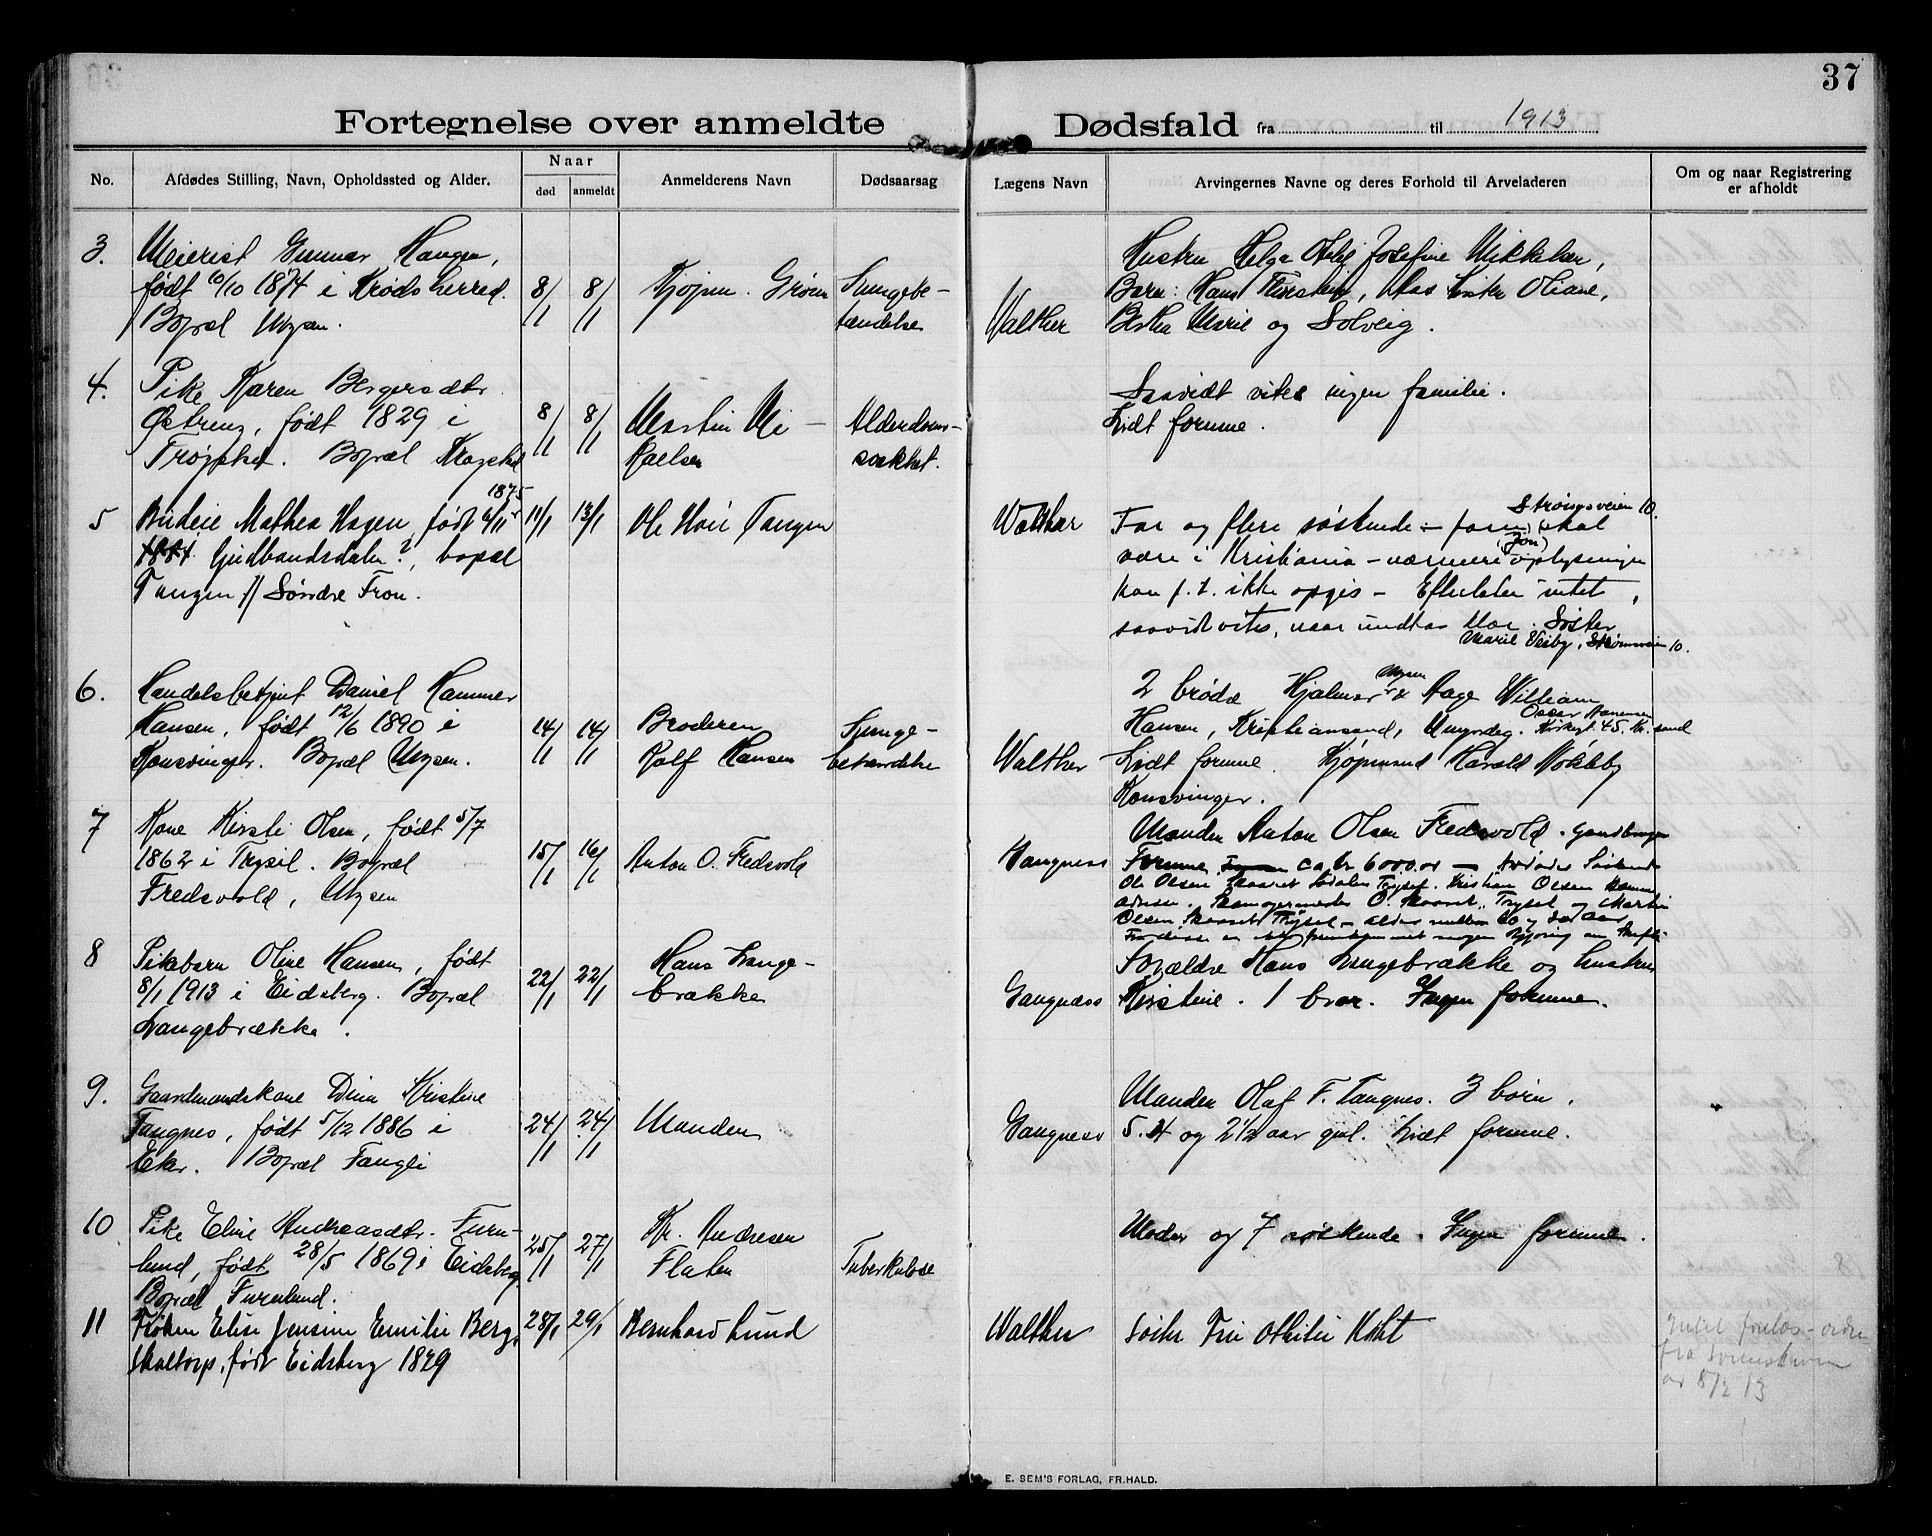 37
Fortegnelse over anmeldte Dødsfald fra til 1913
No.
Afdødes Stilling, Navn, Opholdssted og Alder.
Naar
død anmeldt
Anmelderens Navn
Dødsaarsag
Lægens Navn
Arvingernes Navne og deres Forhold til Arveladeren
Om og naar Registrering
er afholdt
3. Meierist Gunnar Haugen,
født 10/10 1874 i Krødsherred.
Bopæl Mysen.
8/1 8/1
Kjøpm. Grøen
Lungebe-
tændelse
Walther
Hustru Helga Otelie Josefine Mikkelsen,
Barn: Hans Thorstein, Olianne,
Bertha Marie og Solveig.
4. Pike Karen Bergersdtr.
Østreng, født 1829 i
Trøgstad. Bopæl
8/1 8/1
Martin Mi-
kaelsen
Alderdoms-
svakhet.
Saavidt vites ingen familie.
Lidt formue.
5 Budeie Mathea Hagen, født 6/11 1875
1884 Gudbrandsdalen?, bopæl
Tangen // Søndre Fron.
11/1 13/1
Ole Hvii Tangen
Walther
Strømsveien 10.
Far og flere søskende - faren (Jon) skal
være i Kristiania - nærmere oplysninger
kan p. t. ikke opgis - Efterlater intet,
saavidt vites, naar undtas klær. Søster
Marie Visby, Strømsveien 10.
6. Handelsbetjent Daniel Hammer
Hansen, født 12/6 1890 i
Kongsvinger. Bopæl Mysen.
14/1 14/1
Broderen
Rolf Hansen
Lunge-
betændelse
Walther
2 brødre Hjalmar Mysen & Aage William
Hansen, Kristiansand, Umyndig. Oscar Hansen Kirkegt. 45. Kr.sand
Lidt formue. Kjøpmand Harald Nökleby
Kongsvinger.
7 Kone Kirsti Olsen, født 5/7
1862 i Trysil. Bopæl
Fredsvold, Mysen
15/1 16/1
Anton O. Fredsvold
Gangness
Manden Anton Olsen Fredsvold. Gaardbruger
Formue ca. kr 6000.00 -
Ole Olsen Trysil. Kristian Olsen
adresse. O. Skaaret, Trysil og Martin
Olsen Skaaret Trysil - alder mellem 40 og 50 aar
8 Pikebarn Oline Hansen, født
8/1 1913 i Eidsberg. Bopæl
Langebrække.
22/1 22/1
Hans Lange-
brække
Gangness
Forældre Hans Langebrække og hustru
Kirstine. 1 bror. Ingen formue.
9. Gaardmandskone Dina Kristine
Tangnes, født 5/12 1886 i
Eker. Bopæl Tangli
24/1 24/1
Manden
Gangness
Manden Olaf F. Tangnes. 3 børn,
5. 4 og 2½ aar gml. Lidt formue.
10 Pike Eline Andreasdtr. Furu-
lund, født 28/5 1869 i Eidsberg
Bopæl Furulund.
25/1 27/1
Kr. Andresen
Flaten
Tuberkulose
Moder og 7 søskende. Ingen formue.
11 Frøken Elise Jensine Emilie Berg,
Skaltorp, født Eidsberg 1829
28/1 29/1
Bernhard Lund
Walther
Søster Fru Othilie Koht
Intet
fra
av 8/2 13
E. SEM'S FORLAG, FR.HALD.